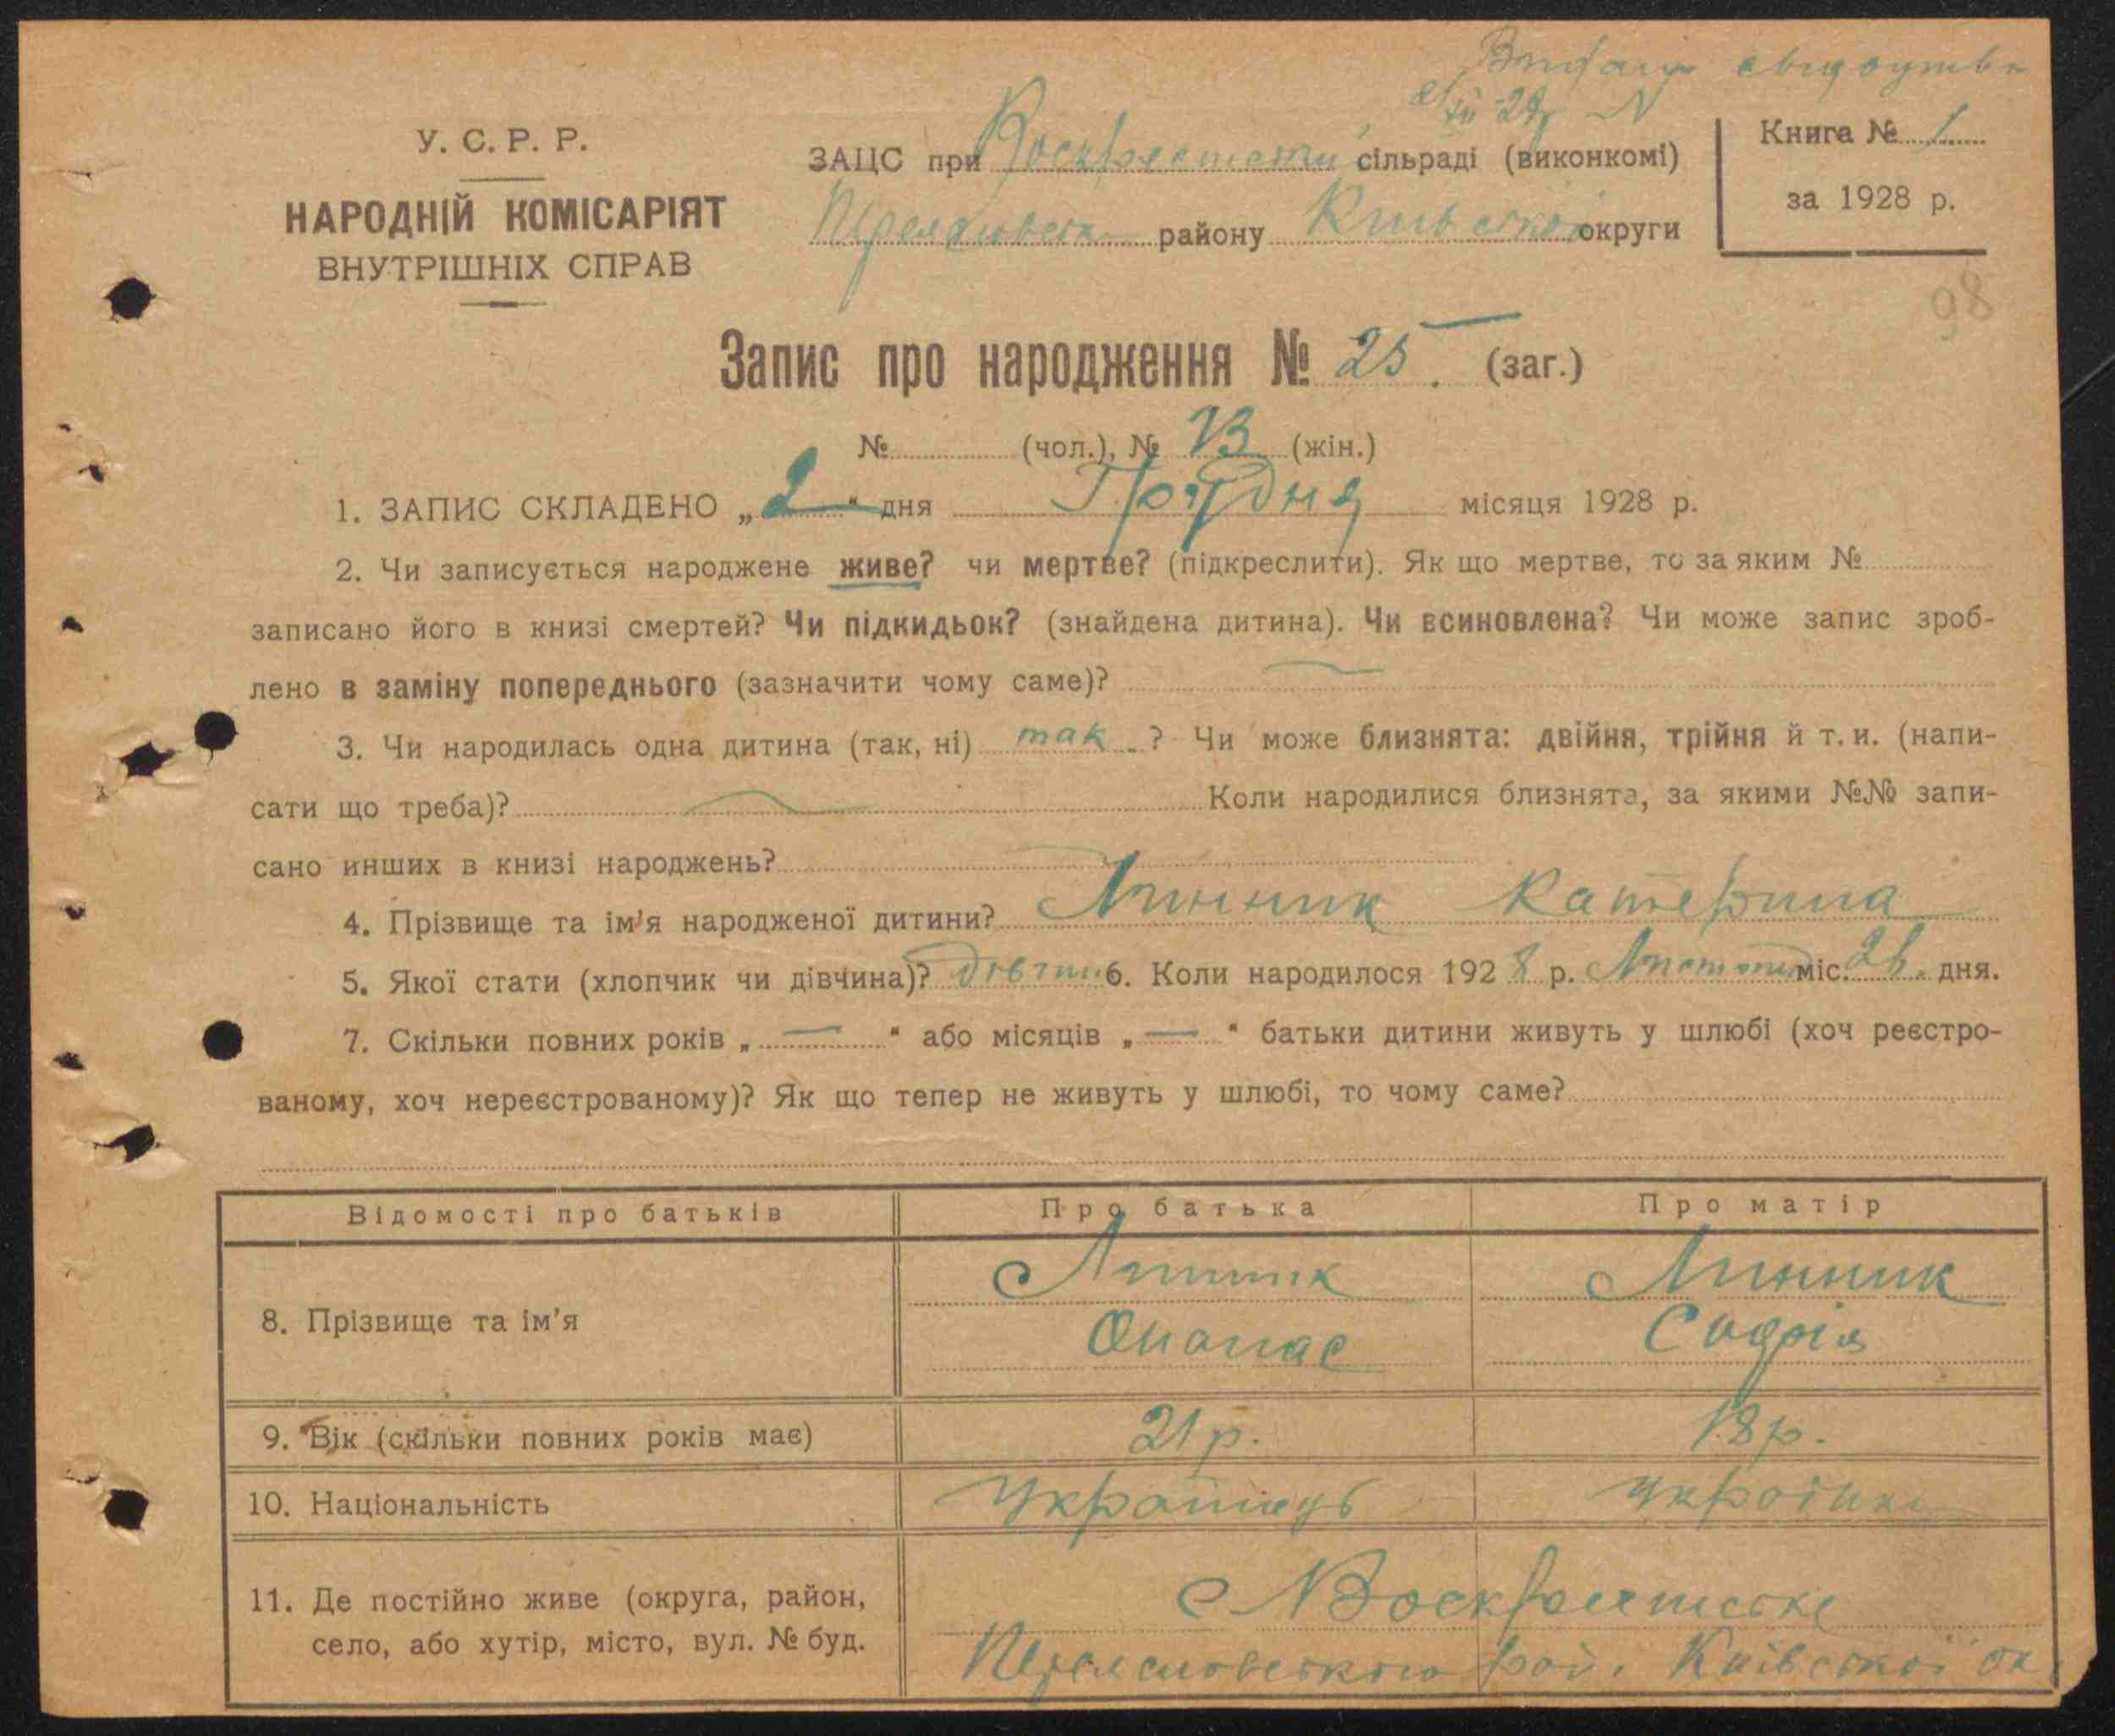 Видано свідоцтво
У. С. Р. Р.
НАРОДНІЙ КОМІСАРІЯТ
ВНУТРІШНІХ СПРАВ
ЗАЦС при сільраді (виконкомі)
району Київської округи
Книга № 1
за 1928 р.
98
Запис про народження № 25. (заг.)
№ (чол.), № 13 (жін.)
1. ЗАПИС СКЛАДЕНО „2“ дня Грудня місяця 1928 р.
2. Чи записується народжене живе? чи мертве? (підкреслити). Як що мертве, то за яким №
записано його в книзі смертей? Чи підкидьок? (знайдена дитина). Чи всиновлена? Чи може запис зроб-
лено в заміну попереднього (зазначити чому саме)? —
3. Чи народилась одна дитина (так, ні) так ? Чи може близнята: двійня, трійня й т. и. (напи-
сати що треба)? — Коли народилися близнята, за якими №№ запи-
сано инших в книзі народжень?
4. Прізвище та ім'я народженої дитини? Линник Катерина
5. Якої стати (хлопчик чи дівчина)? дівчин 6. Коли народилося 1928 р. Листопад міс. 26 дня.
7. Скільки повних років „ — “ або місяців „ — “ батьки дитини живуть у шлюбі (хоч реєстро-
ваному, хоч нереєстрованому)? Як що тепер не живуть у шлюбі, то чому саме?
Відомості про батьків Про батька Про матір
8. Прізвище та ім'я Линник Опанас Линник Софія
9. Вік (скільки повних років має) 21 р. 18 р.
10. Національність Українець Українка
11. Де постійно живе (округа, район,
село, або хутір, місто, вул. № буд.
с. рай. Київської ок